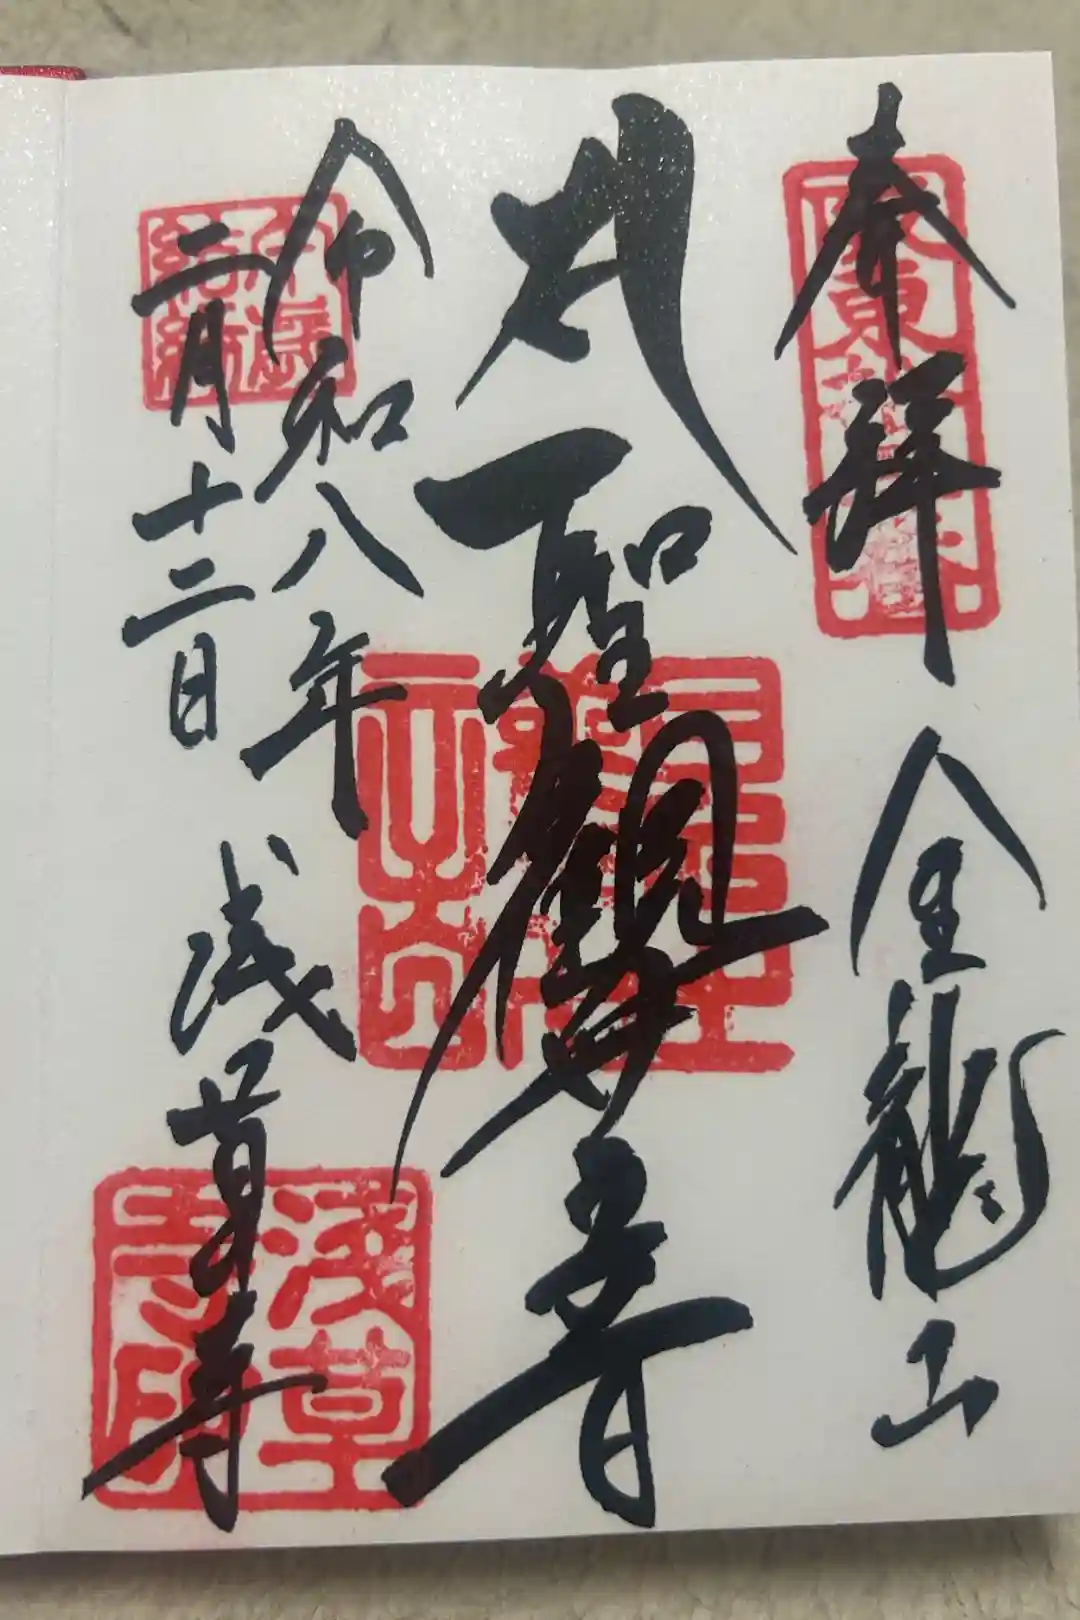 奉拝
金龍山
聖観世音
令和八年
二月十二日
浅草寺
浅草
寺印